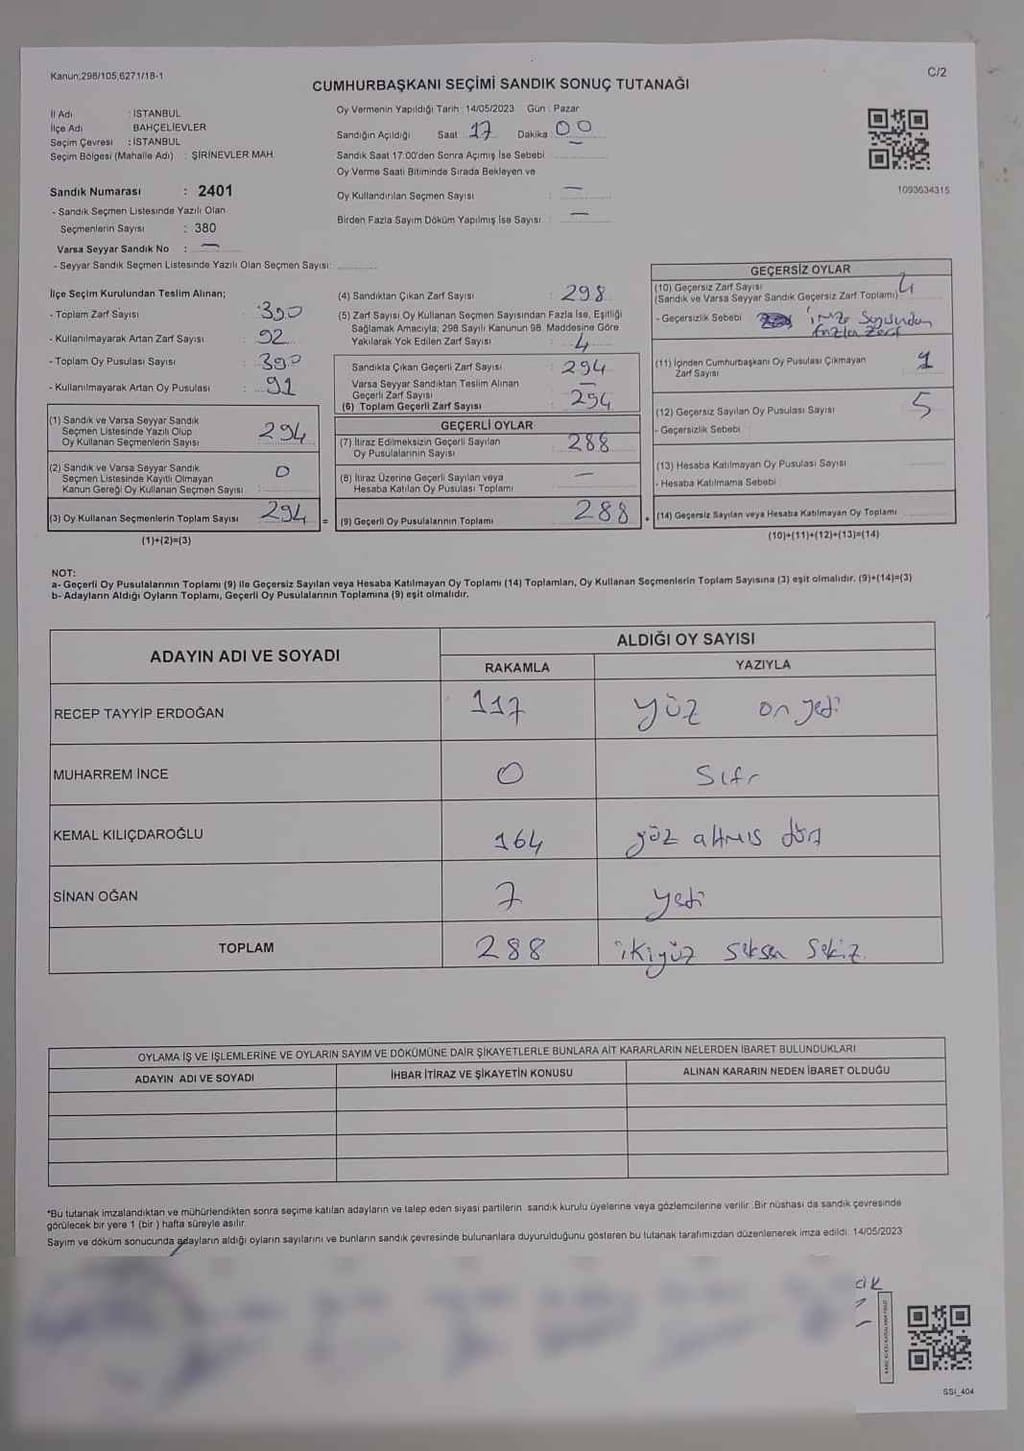 Kanun:298/105,6271/18-1
C/2
CUMHURBAŞKANI SEÇİMİ SANDIK SONUÇ TUTANAĞI
İl Adı : İSTANBUL
İlçe Adı BAHÇELİEVLER
Seçim Çevresi : İSTANBUL
Seçim Bölgesi (Mahalle Adı) : ŞİRİNEVLER MAH.
Sandık Numarası : 2401
- Sandık Seçmen Listesinde Yazılı Olan
Seçmenlerin Sayısı : 380
Varsa Seyyar Sandık No : —
- Seyyar Sandık Seçmen Listesinde Yazılı Olan Seçmen Sayısı:
Oy Vermenin Yapıldığı Tarih : 14/05/2023 Gün : Pazar
Sandığın Açıldığı Saat 17 Dakika 00
Sandık Saat 17:00'den Sonra Açımış İse Sebebi
Oy Verme Saati Bitiminde Sırada Bekleyen ve
Oy Kullandırılan Seçmen Sayısı : —
Birden Fazla Sayım Döküm Yapılmış İse Sayısı : —
1093634315
İlçe Seçim Kurulundan Teslim Alınan;
- Toplam Zarf Sayısı : 390
- Kullanılmayarak Artan Zarf Sayısı : 92
- Toplam Oy Pusulası Sayısı : 390
- Kullanılmayarak Artan Oy Pusulası : 91
(1) Sandık ve Varsa Seyyar Sandık
Seçmen Listesinde Yazılı Olup
Oy Kullanan Seçmenlerin Sayısı 294
(2) Sandık ve Varsa Seyyar Sandık
Seçmen Listesinde Kayıtlı Olmayan
Kanun Gereği Oy Kullanan Seçmen Sayısı 0
(3) Oy Kullanan Seçmenlerin Toplam Sayısı 294 =
(1)+(2)=(3)
(4) Sandıktan Çıkan Zarf Sayısı : 298
(5) Zarf Sayısı Oy Kullanan Seçmen Sayısından Fazla İse, Eşitliği
Sağlamak Amacıyla; 298 Sayılı Kanunun 98. Maddesine Göre
Yakılarak Yok Edilen Zarf Sayısı : 4
Sandıkta Çıkan Geçerli Zarf Sayısı 294
Varsa Seyyar Sandıktan Teslim Alınan
Geçerli Zarf Sayısı —
(6) Toplam Geçerli Zarf Sayısı 294
GEÇERLİ OYLAR
(7) İtiraz Edilmeksizin Geçerli Sayılan
Oy Pusulalarının Sayısı 288
(8) İtiraz Üzerine Geçerli Sayılan veya
Hesaba Katılan Oy Pusulası Toplamı —
(9) Geçerli Oy Pusulalarının Toplamı 288 +
GEÇERSİZ OYLAR
(10) Geçersiz Zarf Sayısı
(Sandık ve Varsa Seyyar Sandık Geçersiz Zarf Toplamı) 4
- Geçersizlik Sebebi imza Sayısından
fazla zarf
(11) İçinden Cumhurbaşkanı Oy Pusulası Çıkmayan
Zarf Sayısı 1
(12) Geçersiz Sayılan Oy Pusulası Sayısı 5
- Geçersizlik Sebebi
(13) Hesaba Katılmayan Oy Pusulası Sayısı
- Hesaba Katılmama Sebebi
(14) Geçersiz Sayılan veya Hesaba Katılmayan Oy Toplamı
(10)+(11)+(12)+(13)=(14)
NOT:
a- Geçerli Oy Pusulalarının Toplamı (9) ile Geçersiz Sayılan veya Hesaba Katılmayan Oy Toplamı (14) Toplamları, Oy Kullanan Seçmenlerin Toplam Sayısına (3) eşit olmalıdır. (9)+(14)=(3)
b- Adayların Aldığı Oyların Toplamı, Geçerli Oy Pusulalarının Toplamına (9) eşit olmalıdır.
ADAYIN ADI VE SOYADI
ALDIĞI OY SAYISI
RAKAMLA YAZIYLA
RECEP TAYYİP ERDOĞAN 117 yüz on yedi
MUHARREM İNCE 0 Sıfr
KEMAL KILIÇDAROĞLU 164 yüz altmıs dört
SİNAN OĞAN 7 yedi
TOPLAM 288 ikiyüz seksen sekiz
OYLAMA İŞ VE İŞLEMLERİNE VE OYLARIN SAYIM VE DÖKÜMÜNE DAİR ŞİKAYETLERLE BUNLARA AİT KARARLARIN NELERDEN İBARET BULUNDUKLARI
ADAYIN ADI VE SOYADI İHBAR İTİRAZ VE ŞİKAYETİN KONUSU ALINAN KARARIN NEDEN İBARET OLDUĞU
*Bu tutanak imzalandıktan ve mühürlendikten sonra seçime katılan adayların ve talep eden siyasi partilerin sandık kurulu üyelerine veya gözlemcilerine verilir. Bir nüshası da sandık çevresinde
görülecek bir yere 1 (bir) hafta süreyle asılır.
Sayım ve döküm sonucunda adayların aldığı oyların sayılarını ve bunların sandık çevresinde bulunanlara duyurulduğunu gösteren bu tutanak tarafımızdan düzenlenerek imza edildi. 14/05/2023
SSI_404